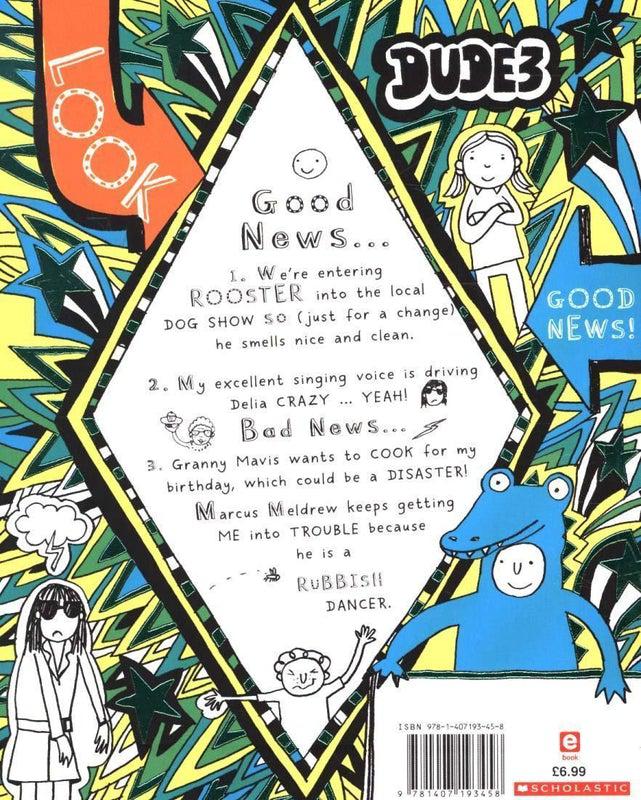 LOOK
DUDE3
Good
News...
1. We're entering
ROOSTER into the local
DOG SHOW SO (just for a change)
he smells nice and clean.
GOOD
NEWS!
2. My excellent singing voice is driving
Delia CRAZY ... YEAH!
Bad News...
3. Granny Mavis wants to COOK for my
birthday, which could be a DISASTER!
Marcus Meldrew keeps getting
ME into TROUBLE because
he is a
RUBBISH
DANCER.
ISBN 978-1-407193-45-8
9 781407 193458
e
book
£6.99
SCHOLASTIC